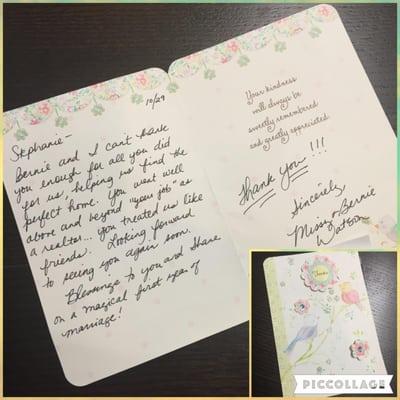 10/29
Stephanie -
Bernie and I can't thank
you enough for all you did
for us, helping us find the
perfect home. You went well
above and beyond "your job" as
a realtor... you treated us like
friends. Looking forward
to seeing you again soon.
Blessings to you and Shane
on a magical first year of
marriage!
Your kindness
will always be
sweetly remembered
and greatly appreciated.
Thank You!!!
Sincerely,
Missy & Bernie
Watson
Thanks
PICCOLLAGE